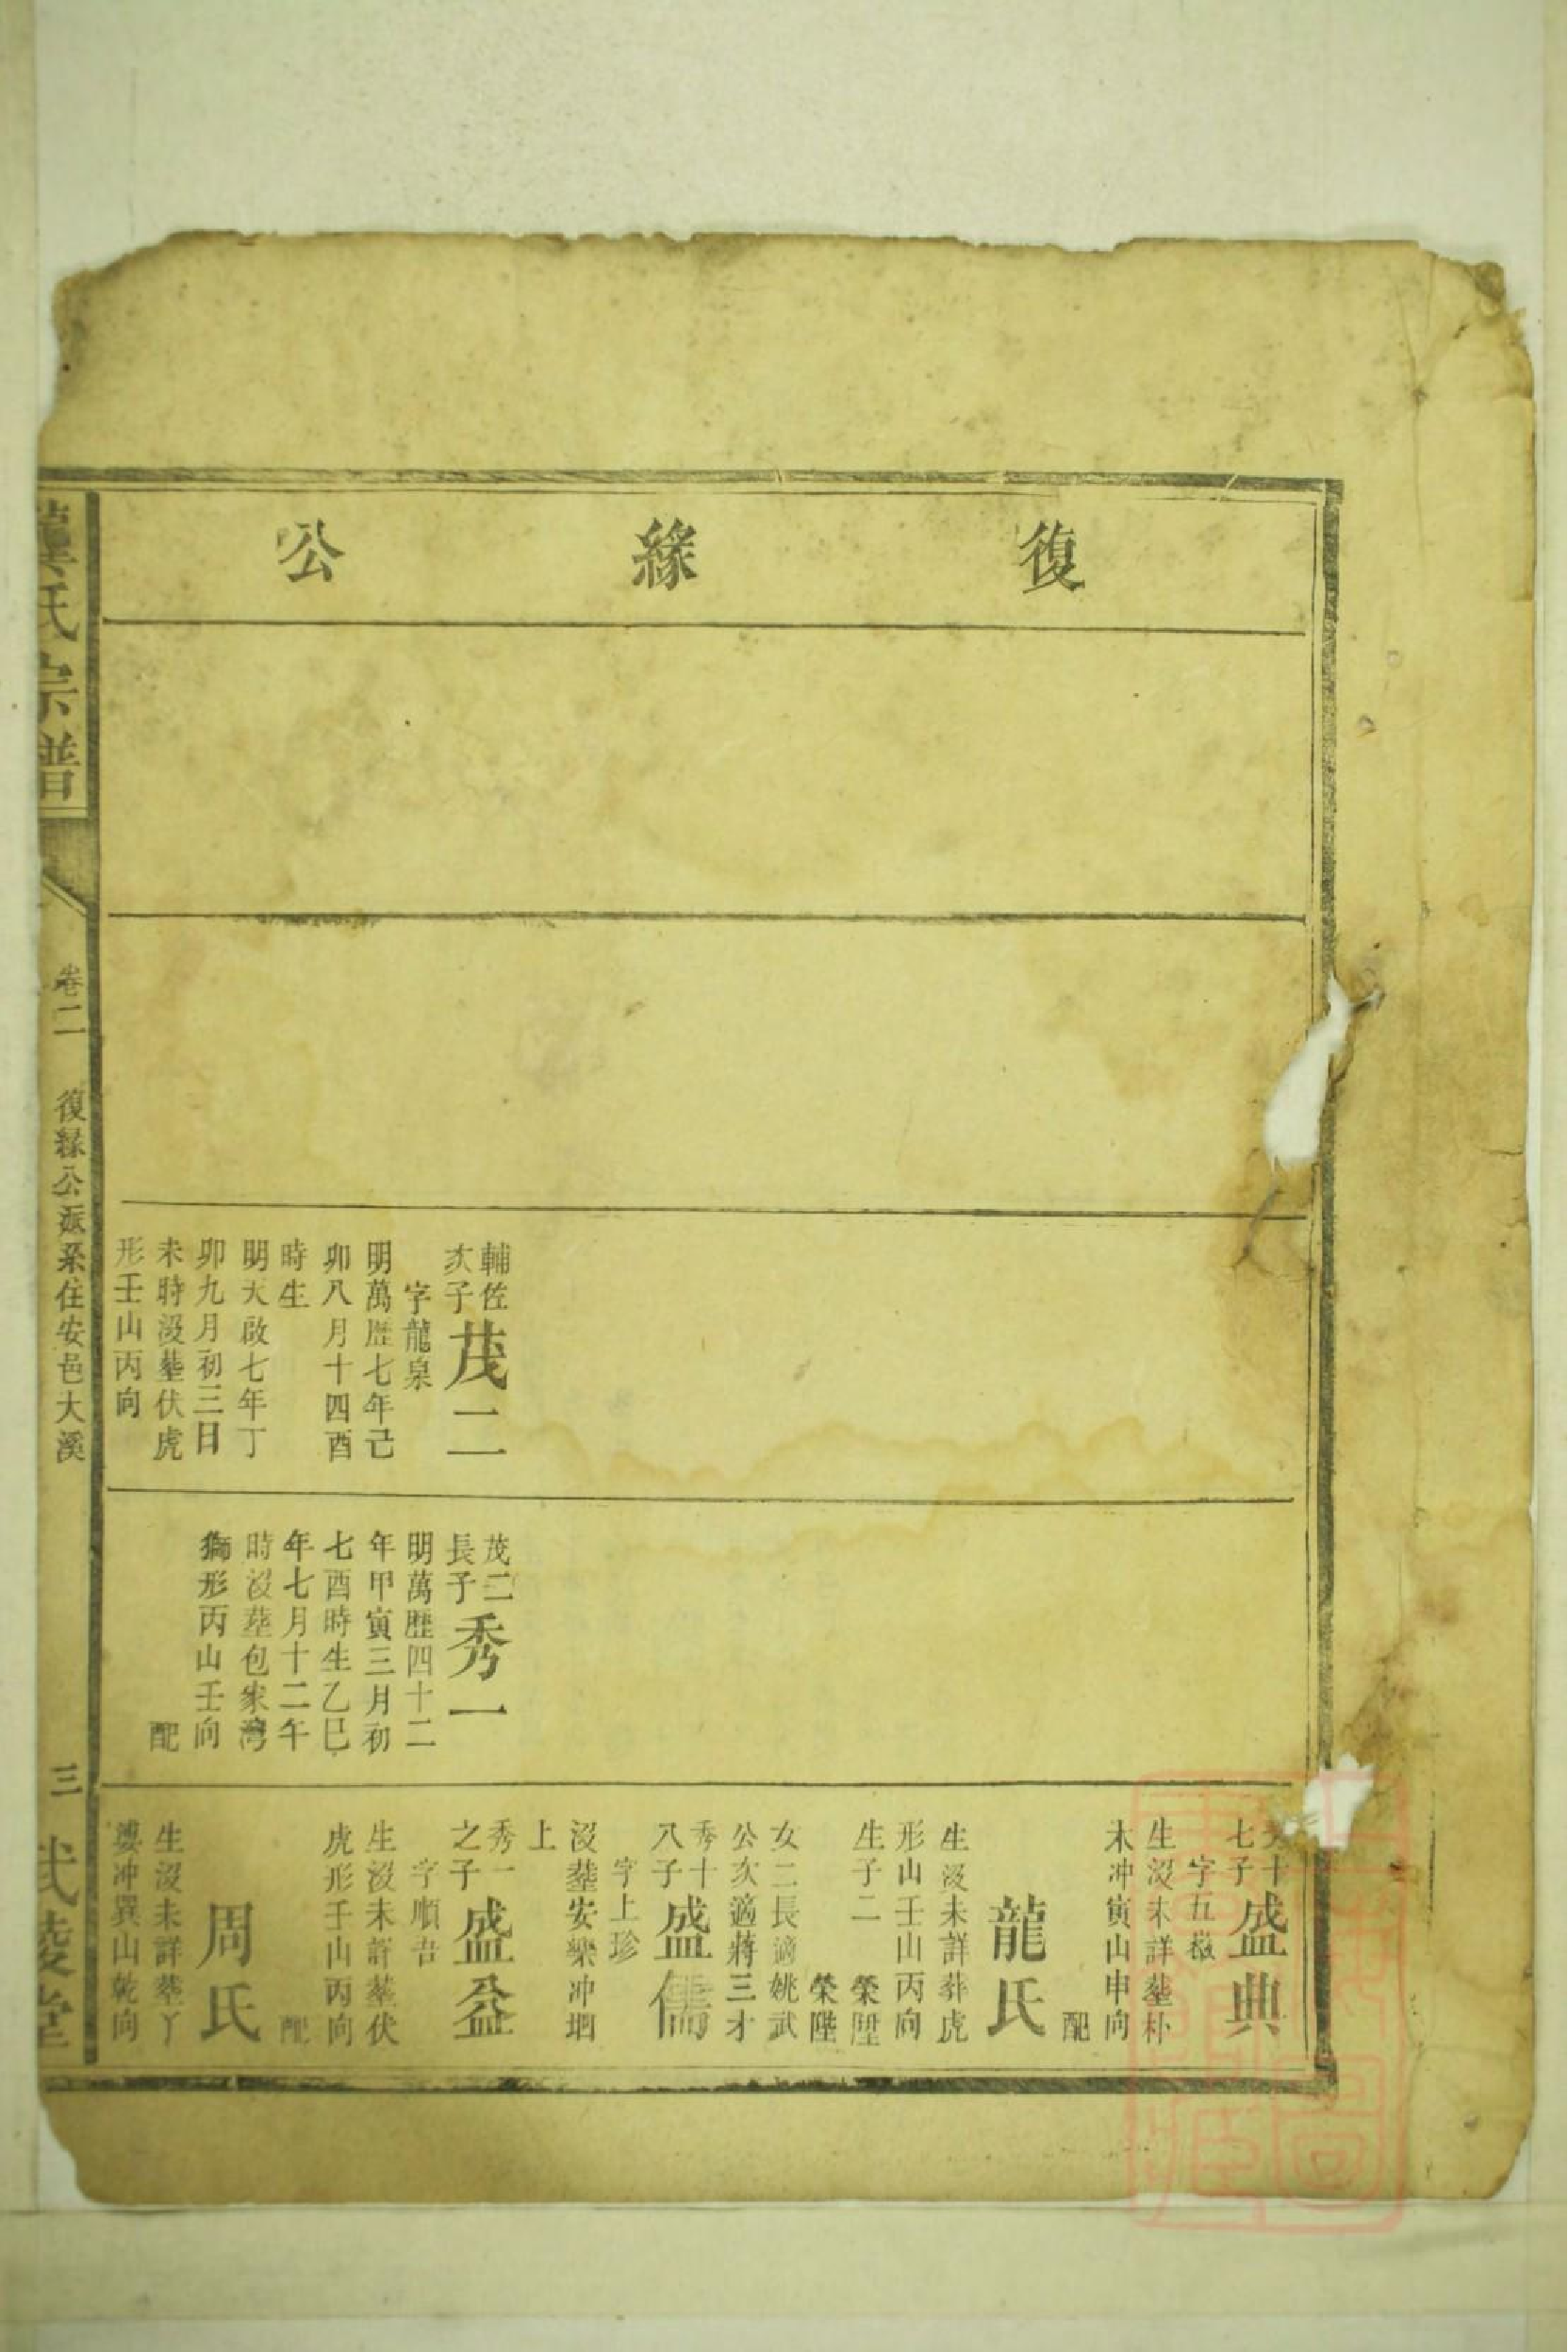 復緣公
輔佐
次子
茂二
字龍泉
明萬歷七年己
卯八月十四酉
時生
明天啟七年丁
卯九月初三日
未時沒塟伏虎
形壬山丙向
茂二
長子
秀一
明萬歷四十二
年甲寅三月初
七酉時生乙巳
年七月十二午
時沒塟包家灣
獅形丙山壬向
配
十
七子
盛典
字五嶽
生沒未詳塟朴
木冲寅山申向
配
龍氏
生沒未詳葬虎
形山壬山丙向
生子二
榮陞
榮陛
女二長適姚武
公次適蔣三才
秀十
八子
盛儒
字上珍
沒塟安樂冲垇
上
秀一
之子
盛益
字順吾
生沒未詳塟伏
虎形壬山丙向
配
周氏
生沒未詳塟丫
婆冲巽山乾向
氏宗譜
卷二
復緣公派系住安邑大溪
三
武陵堂